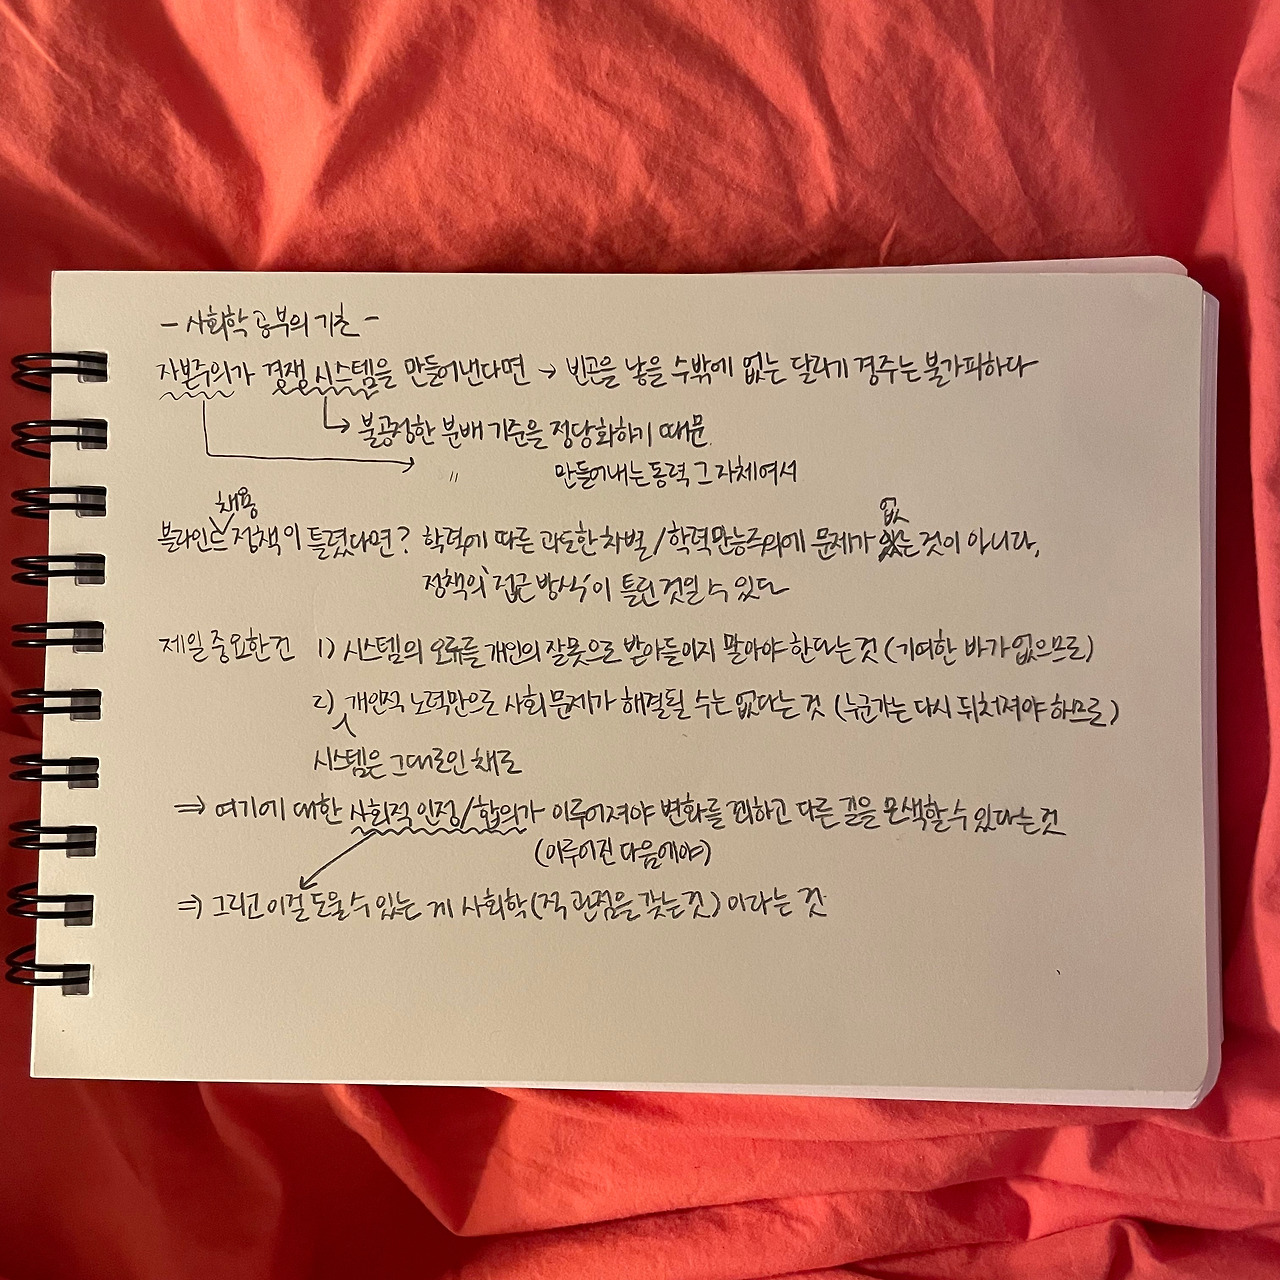 - 사회학 공부의 기초 -
자본주의가 경쟁 시스템을 만들어낸다면 → 빈곤을 낳을 수밖에 없는 달리기 경주는 불가피하다
↳ 불공정한 분배 기준을 정당화하기 때문.
→ 〃 만들어내는 동력 그 자체여서
채용 없
블라인드∨정책이 틀렸다면? 학력에 따른 과도한 차별/학력만능주의에 문제가 있는 것이 아니라,
정책의 '접근 방식'이 틀린 것일 수 있다
제일 중요한 건 1) 시스템의 오류를 개인의 잘못으로 받아들이지 말아야 한다는 것 (기여한 바가 없으므로)
2) 개인적 노력만으로 사회 문제가 해결될 수는 없다는 것 (누군가는 다시 뒤처져야 하므로)
시스템은 그대로인 채로
⇒ 여기에 대한 사회적 인정/합의가 이루어져야 변화를 꾀하고 다른 길을 모색할 수 있다는 것
(이루어진 다음에야)
⇒ 그리고 이걸 도울 수 있는 게 사회학(적 관점을 갖는 것)이라는 것